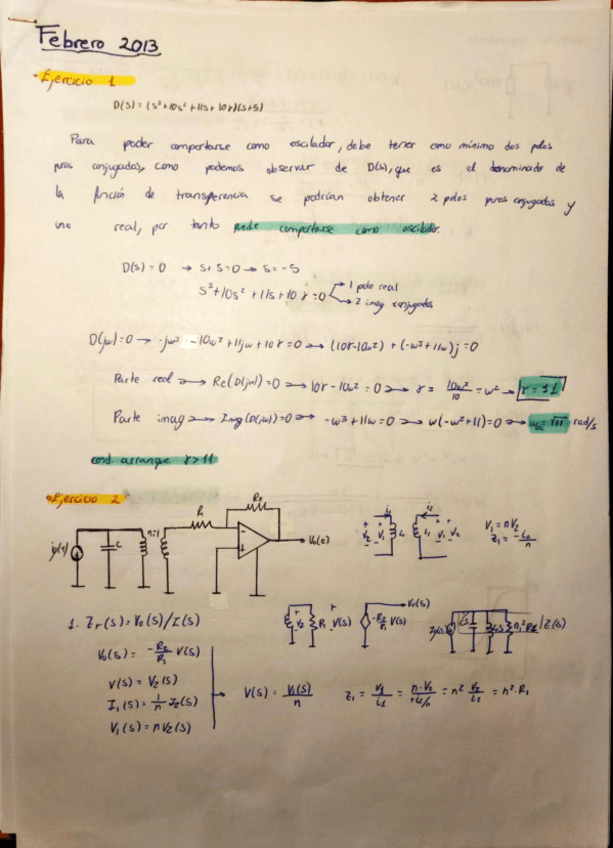 Febrero 2013
• Ejercicio 1
D(s) = (s³+10s²+11s+10r)(s+5)
Para poder comportarse como oscilador, debe tener como mínimo dos polos
puros conjugados, como podemos observar de D(s), que es el denominador de
la función de transferencia se podrían obtener 2 polos puros conjugados y
uno real, por tanto puede comportarse como oscilador.
D(s) = 0 → s+5=0 → s = -5
s³+10s²+11s+10r=0 → 1 polo real
→ 2 imag conjugados
D(jw)=0 → -jw³ -10w²+11jw+10r=0 → (10r-10w²) + (-w³+11w)j=0
Parte real → Re(D(jw))=0 → 10r-10w²=0 → r = 10w²/10 = w² → r = 11
Parte imag → Img(D(jw))=0 → -w³+11w=0 → w(-w²+11)=0 → = √11 rad/s
cond. arranque r>11
• Ejercicio 2
C n:1 R1 R2 Vo(t)
i1 i2 + V2 - + V1 - L1 L1 + V1 - + V2 -
V1 = nV2
1. Zr(s) = Vo(s)/I(s)
V2 R1 V(s) -R2/R1 V(s) Vo(s)
n²R1 Z(s)
Vo(s) = -R2/R1 V(s)
V(s) = V2(s)
I1(s) = 1/n I2(s)
V1(s) = nV2(s)
→ V(s) = V1(s)/n
Z1 = V1/i1 = n·V2/ = n² V2/ = n²·R1